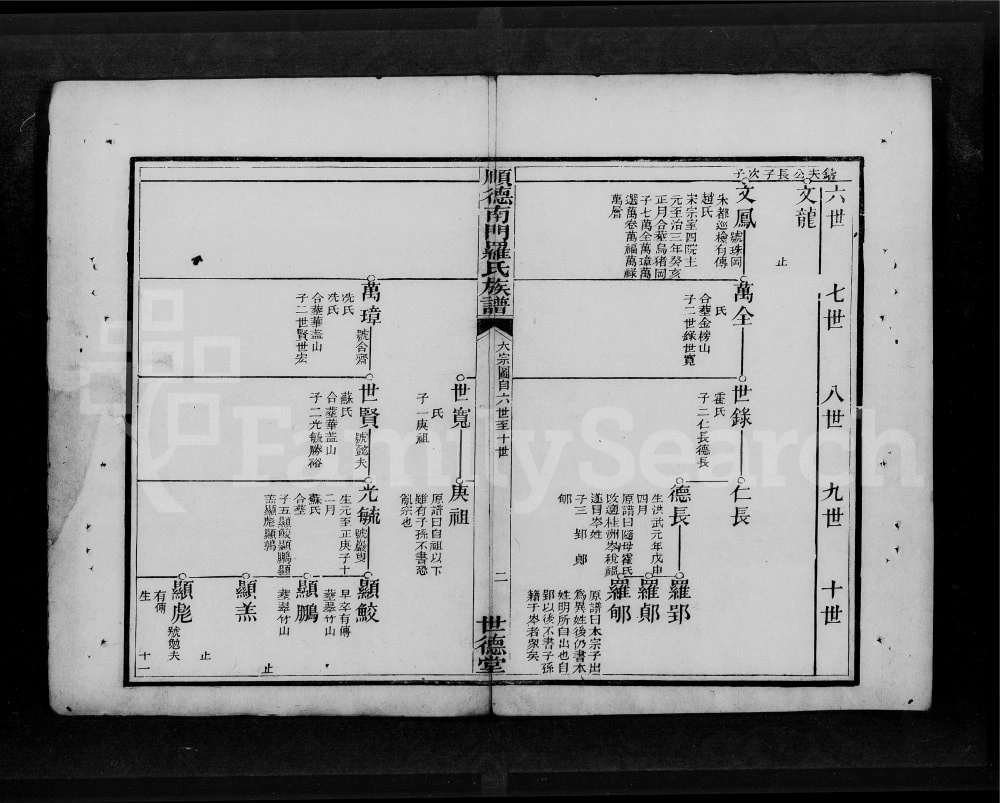 六世
七世
八世
九世
十世
夫公長子次子
文龍
止
文鳳
號珠岡
朱都巡檢有傳
趙氏
宋宗室四院主
元至治三年癸亥
正月合葬烏猪岡
子七萬全萬璋萬
選萬卷萬福萬祿
萬層
萬全
氏
合葬金榜山
子二世錄世寬
世錄
霍氏
子二仁長德長
仁長
德長
生洪武元年戊申
四月
原譜曰隨母霍氏
改適桂洲岑稅福
遂冒岑姓
子三 郢 鄖
郇
羅郢
原譜曰本宗子出
為異姓後仍書本
姓明所自出也自
郢以後不書子孫
籍于岑者衆矣
羅鄖
羅郇
順德南門羅氏族譜
大宗圖自六世至十世
二
世德堂
世寬
氏
子一庚祖
庚祖
原譜曰自祖以下
雖有子孫不書恐
亂宗也
萬璋
號舍齋
冼氏
冼氏
合葬華蓋山
子二世賢世宏
世賢
號懿夫
蘇氏
合葬華蓋山
子二光毓勝裕
光毓
號嚴叟
生元至正庚子十
二月
蘇氏
合葬
子五顯鮫顯鵬顯
羔顯彪顯鶚
顯鮫
早卒有傳
葬翠竹山
顯鵬
葬翠竹山
止
顯羔
止
顯彪
號勉夫
有傳
生
十一
FamilySearch